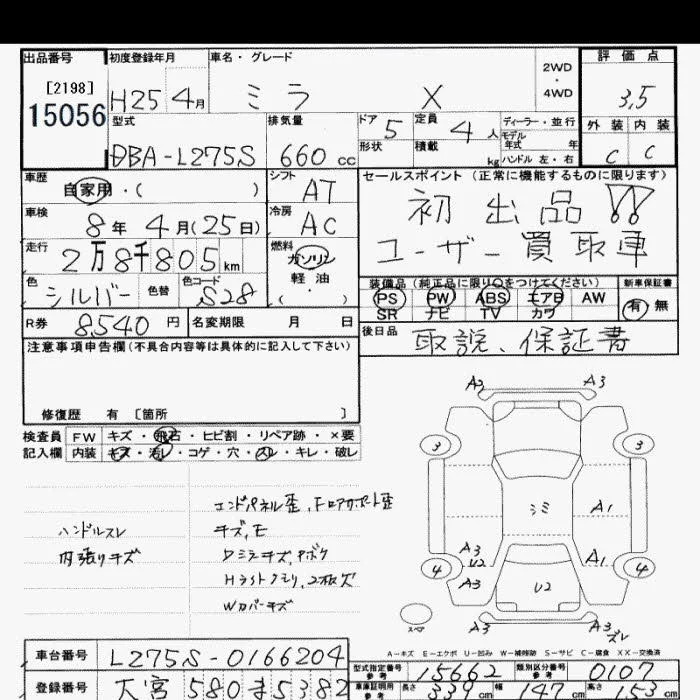 出品番号 初度登録年月 車名・グレード 2WD・4WD 評価点
[2198] 15056 H25 4月 ミラ X 3,5
型式 排気量 ドア 5 定員 4人 ディーラー・並行 外装 内装
DBA-L275S 660cc 形状 積載 kg モデル年式 年 ハンドル左・右 C C
車歴 自家用・( ) シフト AT セールスポイント (正常に機能するものに限ります)
車検 8年 4月(25日) 冷房 AC 初出品!!
走行 2万8千805km 燃料 ガソリン 軽油 ( ) ユーザー買取車
色 シルバー 色替 色コード S28 装備品 (純正品に限り○をつけてください) 新車保証書
PS PW ABS エアB AW 有 無
SR ナビ TV カワ
R券 8540円 名変期限 月 日 後日品 取説、保証書
注意事項申告欄(不具合内容等は具体的に記入して下さい)
修復歴 有 〔箇所 〕
検査員 FW キズ・飛石・ヒビ割・リペア跡・×要
記入欄 内装 キズ・汚レ・コゲ・穴・スレ・キレ・破レ
A3 A3
3 3
エンドパネル歪、Fロアサポート歪
ハンドルスレ キズ、E ミミ A1
内張りキズ Dミラーキズ、Pボケ A3 U2 A1
4 4
Hライトクモリ、2枚ズ A3 U2
Wカバーキズ
スペア A3 A3 ズレ
A-キズ E-エクボ U-凹み W-補修跡 S-サビ C-腐食 XX-交換済
車台番号 L275S-0166204
型式指定番号 参考 15662 類別区分番号 参考 0107
登録番号 大宮 580 ま 5382 車庫証明用 参考 長さ 339 幅 147 高さ 153
cm